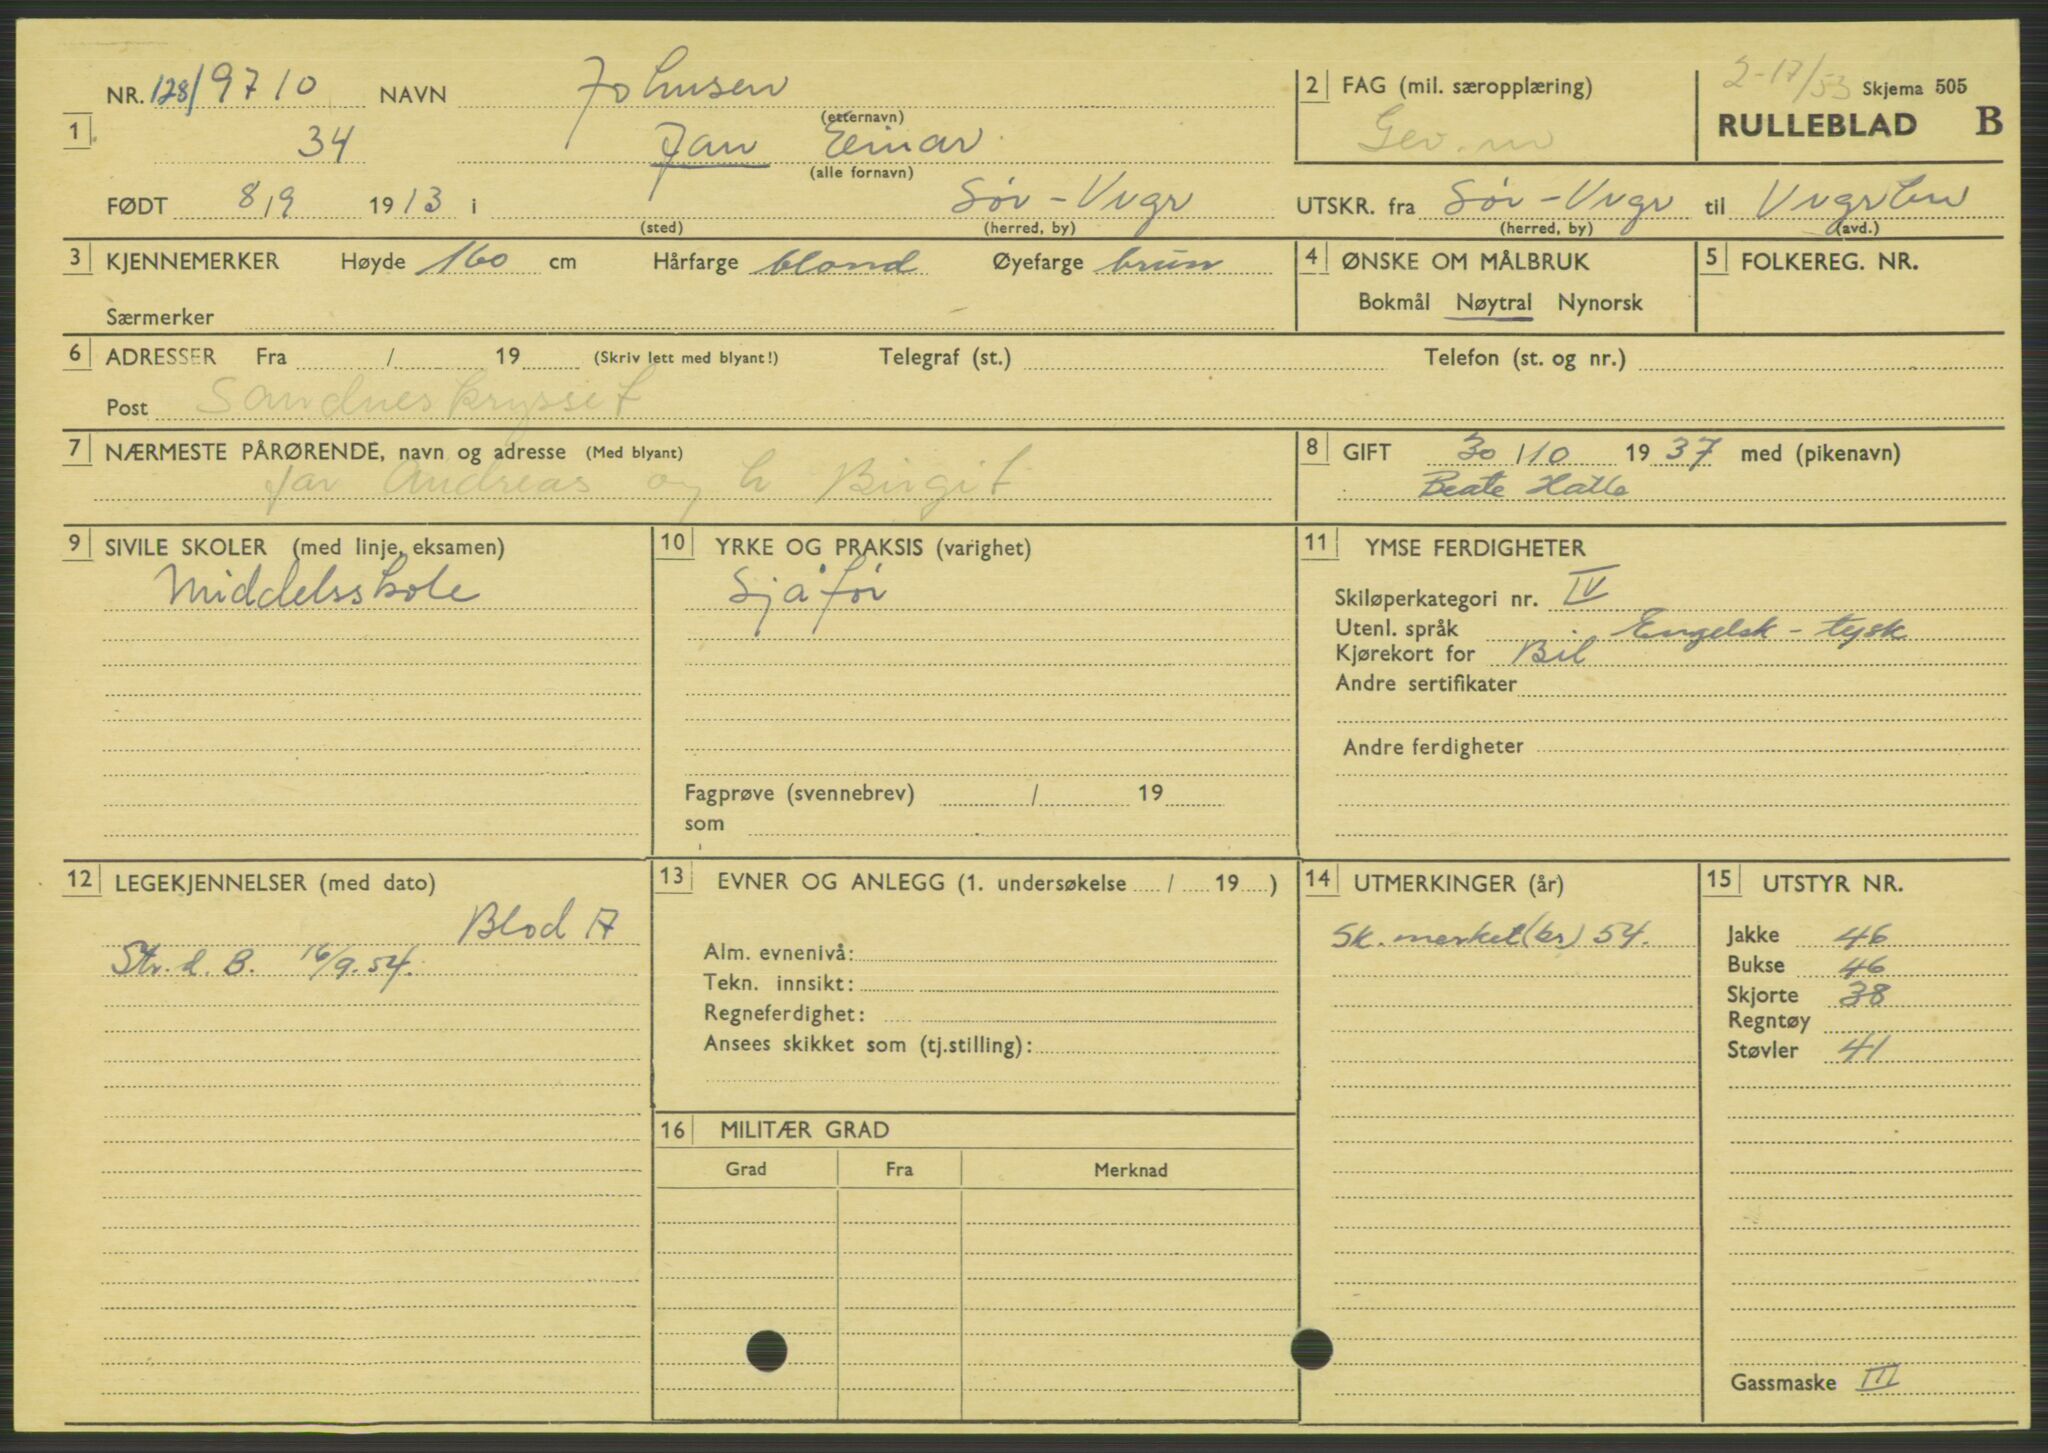 NR. 128/9710 NAVN Johnsen
(etternavn)
1 34 Jan Einar
(alle fornavn)
FØDT 8/9 1913 i Sør-Vvgr
(sted) (herred, by)
2 FAG (mil. særopplæring)
Gev.m
2-17/53 Skjema 505
RULLEBLAD B
UTSKR. fra Sør-Vvgr til
(herred, by) (avd.)
3 KJENNEMERKER Høyde 160 cm Hårfarge blond Øyefarge brun
Særmerker
4 ØNSKE OM MÅLBRUK
Bokmål Nøytral Nynorsk
5 FOLKEREG. NR.
6 ADRESSER Fra / 19 (Skriv lett med blyant!) Telegraf (st.) Telefon (st. og nr.)
Post Sandneskrysset
7 NÆRMESTE PÅRØRENDE, navn og adresse (Med blyant)
far Andreas og h Birgit
8 GIFT 30/10 1937 med (pikenavn)
Beate Halle
9 SIVILE SKOLER (med linje, eksamen)
Middelsskole
10 YRKE OG PRAKSIS (varighet)
Sjåfør
Fagprøve (svennebrev) / 19
som
11 YMSE FERDIGHETER
Skiløperkategori nr. IV
Utenl. språk Engelsk - tysk
Kjørekort for Bil
Andre sertifikater
Andre ferdigheter
12 LEGEKJENNELSER (med dato)
Blod A
Str. d. B. 16/9.54.
13 EVNER OG ANLEGG (1. undersøkelse / 19 )
Alm. evnenivå:
Tekn. innsikt:
Regneferdighet:
Ansees skikket som (tj.stilling):
14 UTMERKINGER (år)
Sk. merket (br) 54.
15 UTSTYR NR.
Jakke 46
Bukse 46
Skjorte 38
Regntøy
Støvler 41
Gassmaske III
16 MILITÆR GRAD
Grad Fra Merknad